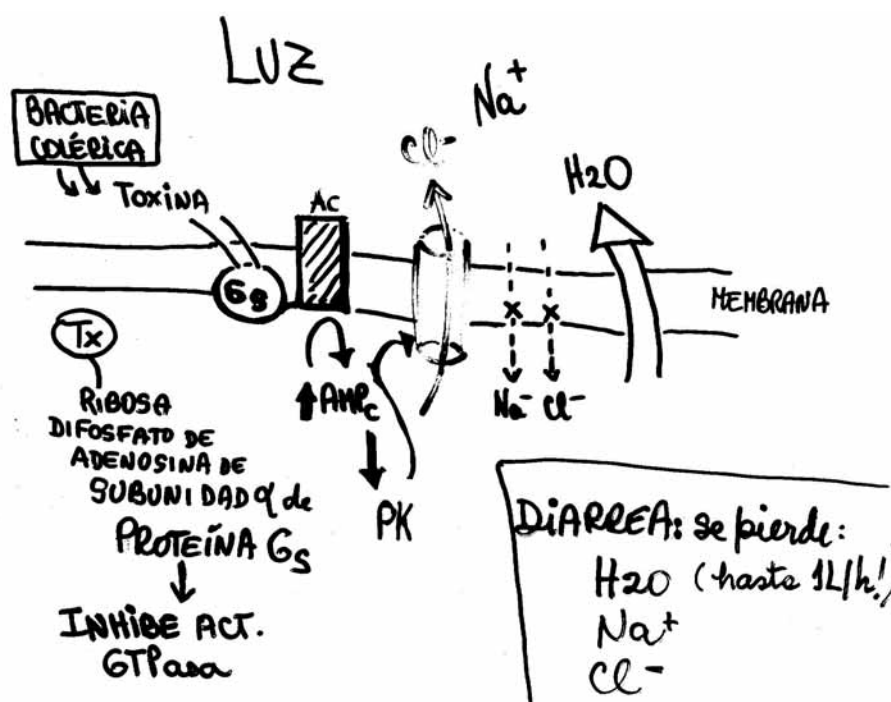 LUZ
BACTERIA
COLÉRICA
TOXINA
AC
Cl-
Na+
H2O
Gs
MEMBRANA
Tx
RIBOSA
DIFOSFATO DE
ADENOSINA DE
SUBUNIDAD α de
PROTEÍNA Gs
INHIBE ACT.
GTPasa
↑AMPc
PK
Na- Cl-
DIARREA: se pierde:
H2O (hasta 1L/h!)
Na+
Cl-